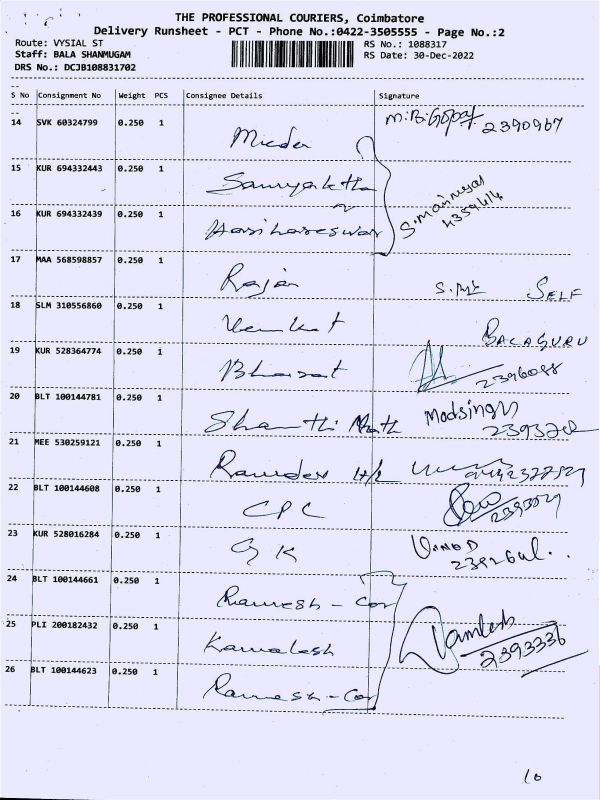 THE PROFESSIONAL COURIERS, Coimbatore
Delivery Runsheet - PCT - Phone No.:0422-3505555 - Page No.:2
Route: VYSIAL ST RS No.: 1088317
Staff: BALA SHANMUGAM RS Date: 30-Dec-2022
DRS No.: DCJB108831702
S No Consignment No Weight PCS Consignee Details Signature
14 SVK 60324799 0.250 1 2390967
15 KUR 694332443 0.250 1
16 KUR 694332439 0.250 1 Harihareswar
17 MAA 568598857 0.250 1 Rajan SELF
18 SLM 310556860 0.250 1 Venkat BALAGURU
19 KUR 528364774 0.250 1 Bharat
20 BLT 100144781 0.250 1 Shanthi
21 MEE 530259121 0.250 1 Ramdev
22 BLT 100144608 0.250 1 CPC
23 KUR 528016284 0.250 1 G K VINOD
24 BLT 100144661 0.250 1 Ramesh - Cor
25 PLI 200182432 0.250 1 Kamalesh Kamlesh 2393336
26 BLT 100144623 0.250 1 Ramesh - Cor
10